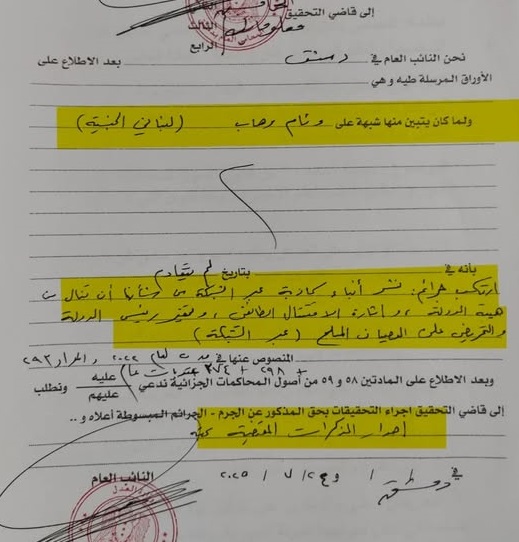 إلى قاضي التحقيق
الثالث
الرابع
نحن النائب العام في دمشق بعد الاطلاع على
الأوراق المرسلة طيه وهي
ولما كان يتبين منها شبهة على وئام وهاب (لبناني الجنسية)
بأنه في بتاريخ لم يتقادم
ارتكب جرائم: نشر أنباء كاذبة عبر الشبكة من شأنها أن تنال من
هيبة الدولة، وإثارة الاقتتال الطائفي، وتحقير رئيس الدولة
والتحريض على العصيان المسلح (عبر الشبكة)
المنصوص عنها في ٢٠٢٢ والمواد ٢٩٣
+ ٢٩٨ + ٣٧٤ عقوبات عام
وبعد الاطلاع على المادتين ٥٨ و ٥٩ من أصول المحاكمات الجزائية ندعي عليه / عليهم ونطلب
إلى قاضي التحقيق اجراء التحقيقات بحق المذكور عن الجرم - الجرائم المبسوطة أعلاه و ..
إصدار المذكرات المقتضية بحقه
دمشق في / و / ٧ / ٢٠٢٥
النائب العام